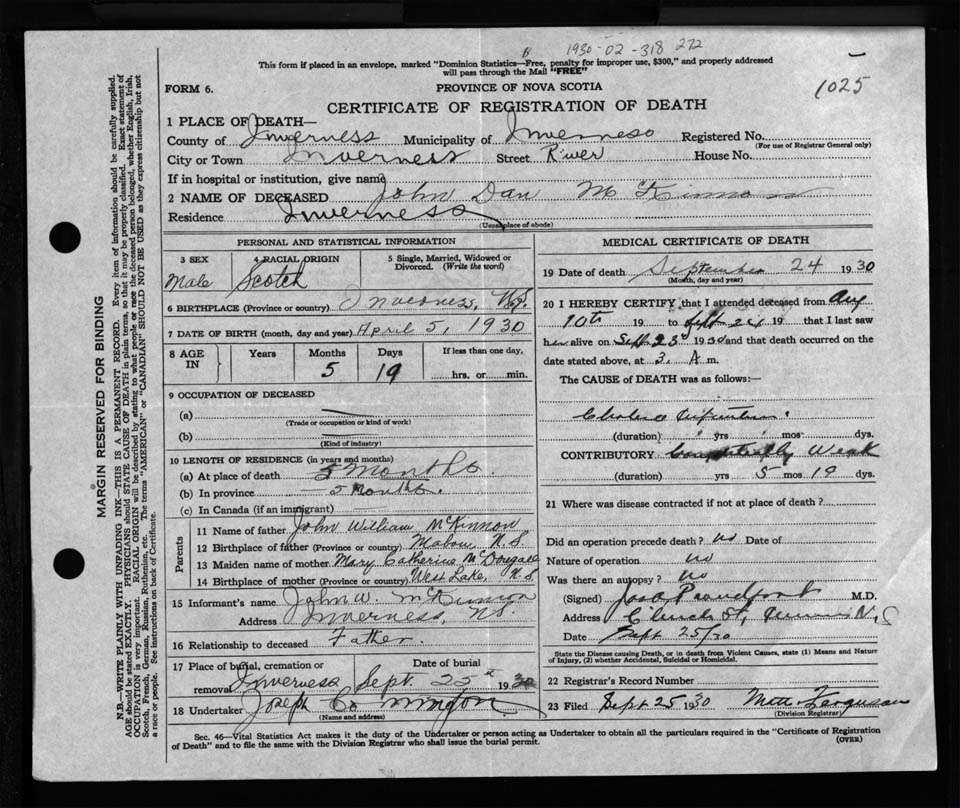 1930-02-318 272
This form if placed in an envelope, marked "Dominion Statistics—Free, penalty for improper use, $300," and properly addressed
will pass through the Mail "FREE"
1025
FORM 6.
PROVINCE OF NOVA SCOTIA
CERTIFICATE OF REGISTRATION OF DEATH
MARGIN RESERVED FOR BINDING
N.B.—WRITE PLAINLY WITH UNFADING INK—THIS IS A PERMANENT RECORD. Every item of information should be carefully supplied.
AGE should be stated EXACTLY. PHYSICIANS should STATE CAUSE OF DEATH in plain terms, so that it may be properly classified. Exact statement of
OCCUPATION is very important. RACIAL ORIGIN will be described by stating to what people or race the deceased person belonged, whether English, Irish,
Scotch, French, German, Russian, Ruthenian, etc. The terms "AMERICAN" or "CANADIAN" SHOULD NOT BE USED as they express citizenship but not
a race or people. See instructions on back of Certificate.
1 PLACE OF DEATH—
County of Inverness Municipality of Inverness Registered No.
(For use of Registrar General only)
City or Town Inverness Street River House No.
If in hospital or institution, give name
2 NAME OF DECEASED John Dan McKinnon
Residence Inverness
(Usual place of abode)
PERSONAL AND STATISTICAL INFORMATION
3 SEX Male
4 RACIAL ORIGIN Scotch
5 Single, Married, Widowed or Divorced. (Write the word)
6 BIRTHPLACE (Province or country) Inverness, N.S.
7 DATE OF BIRTH (month, day and year) April 5, 1930
8 AGE IN Years Months 5 Days 19 If less than one day, hrs. or min.
9 OCCUPATION OF DECEASED
(a)
(Trade or occupation or kind of work)
(b)
(Kind of industry)
10 LENGTH OF RESIDENCE (in years and months)
(a) At place of death 5 Months
(b) In province 5 Months
(c) In Canada (if an immigrant)
Parents
11 Name of father John William McKinnon
12 Birthplace of father (Province or country) Mabou, N.S.
13 Maiden name of mother Mary Catherine McDougall
14 Birthplace of mother (Province or country) West Lake, N.S.
15 Informant's name John W. McKinnon
Address Inverness, N.S.
16 Relationship to deceased Father.
17 Place of burial, cremation or removal Inverness Date of burial Sept. 25 1930
18 Undertaker Joseph
(Name and address)
MEDICAL CERTIFICATE OF DEATH
19 Date of death September 24 1930
(Month, day and year)
20 I HEREBY CERTIFY that I attended deceased from Aug
10th 19 to Sept 24 19 that I last saw
him alive on Sept 23d 1930 and that death occurred on the
date stated above, at 3. A m.
The CAUSE OF DEATH was as follows:—
Cholera Infantum.
(duration) yrs mos dys.
CONTRIBUTORY Constitutionally Weak
(duration) yrs 5 mos 19 dys.
21 Where was disease contracted if not at place of death?
Did an operation precede death? no Date of
Nature of operation no
Was there an autopsy? no
(Signed) Jas. A. Proudfoot M.D.
Address Church St, Inverness N.S
Date Sept 25/30
State the Disease causing Death, or in death from Violent Causes, state (1) Means and Nature
of Injury, (2) whether Accidental, Suicidal or Homicidal.
22 Registrar's Record Number
23 Filed Sept 25 1930 Ferguson
(Division Registrar)
Sec. 46—Vital Statistics Act makes it the duty of the Undertaker or person acting as Undertaker to obtain all the particulars required in the "Certificate of Registration
of Death" and to file the same with the Division Registrar who shall issue the burial permit.
(OVER)